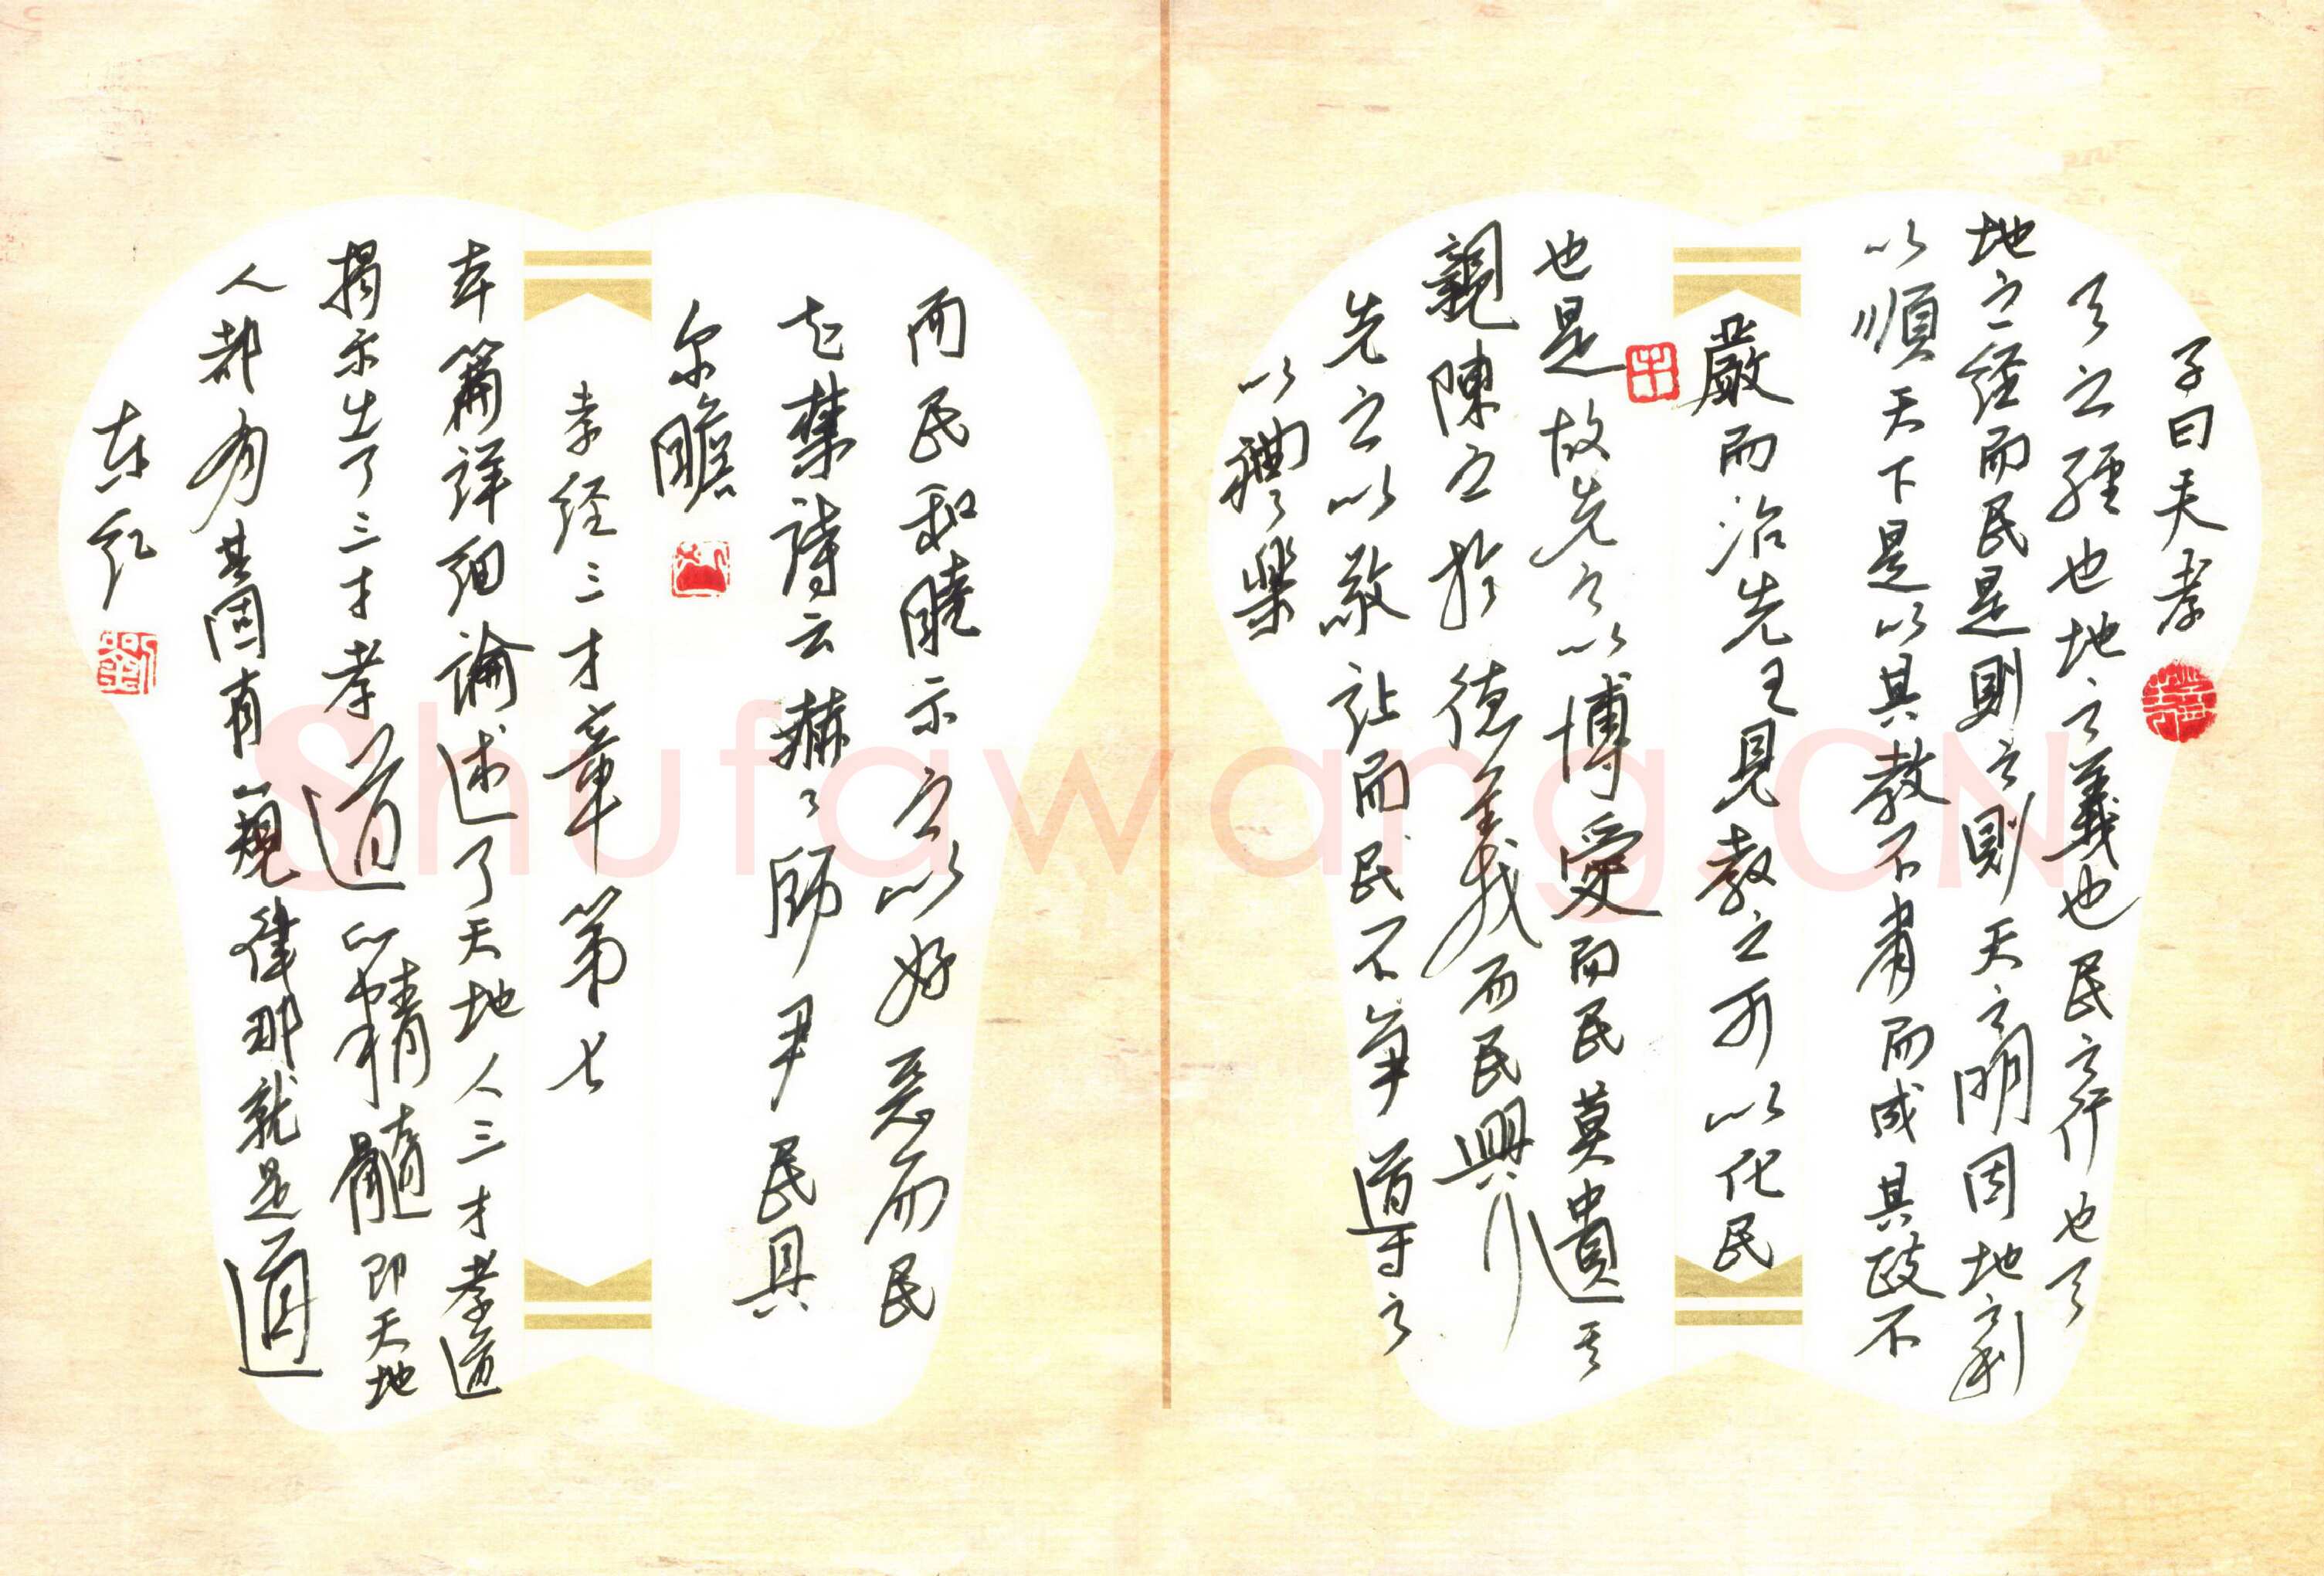 子曰夫孝
天之經也地之義也民之行也天
地之经而民是則之則天之明因地之利
以順天下是以其教不肅而成其政不
嚴而治先王見教之可以化民
也是故先之以博愛而民莫遺其
親陳之於德義而民興行
先之以敬让而民不争導之
以禮樂
而民和睦示之以好惡而民
知禁詩云赫々師尹民具
尔瞻
孝经三才章第七
本篇详细論述了天地人三才孝道
揭示出了三才孝道的精髓即天地
人都有其固有规律那就是道
Shufawang.CN